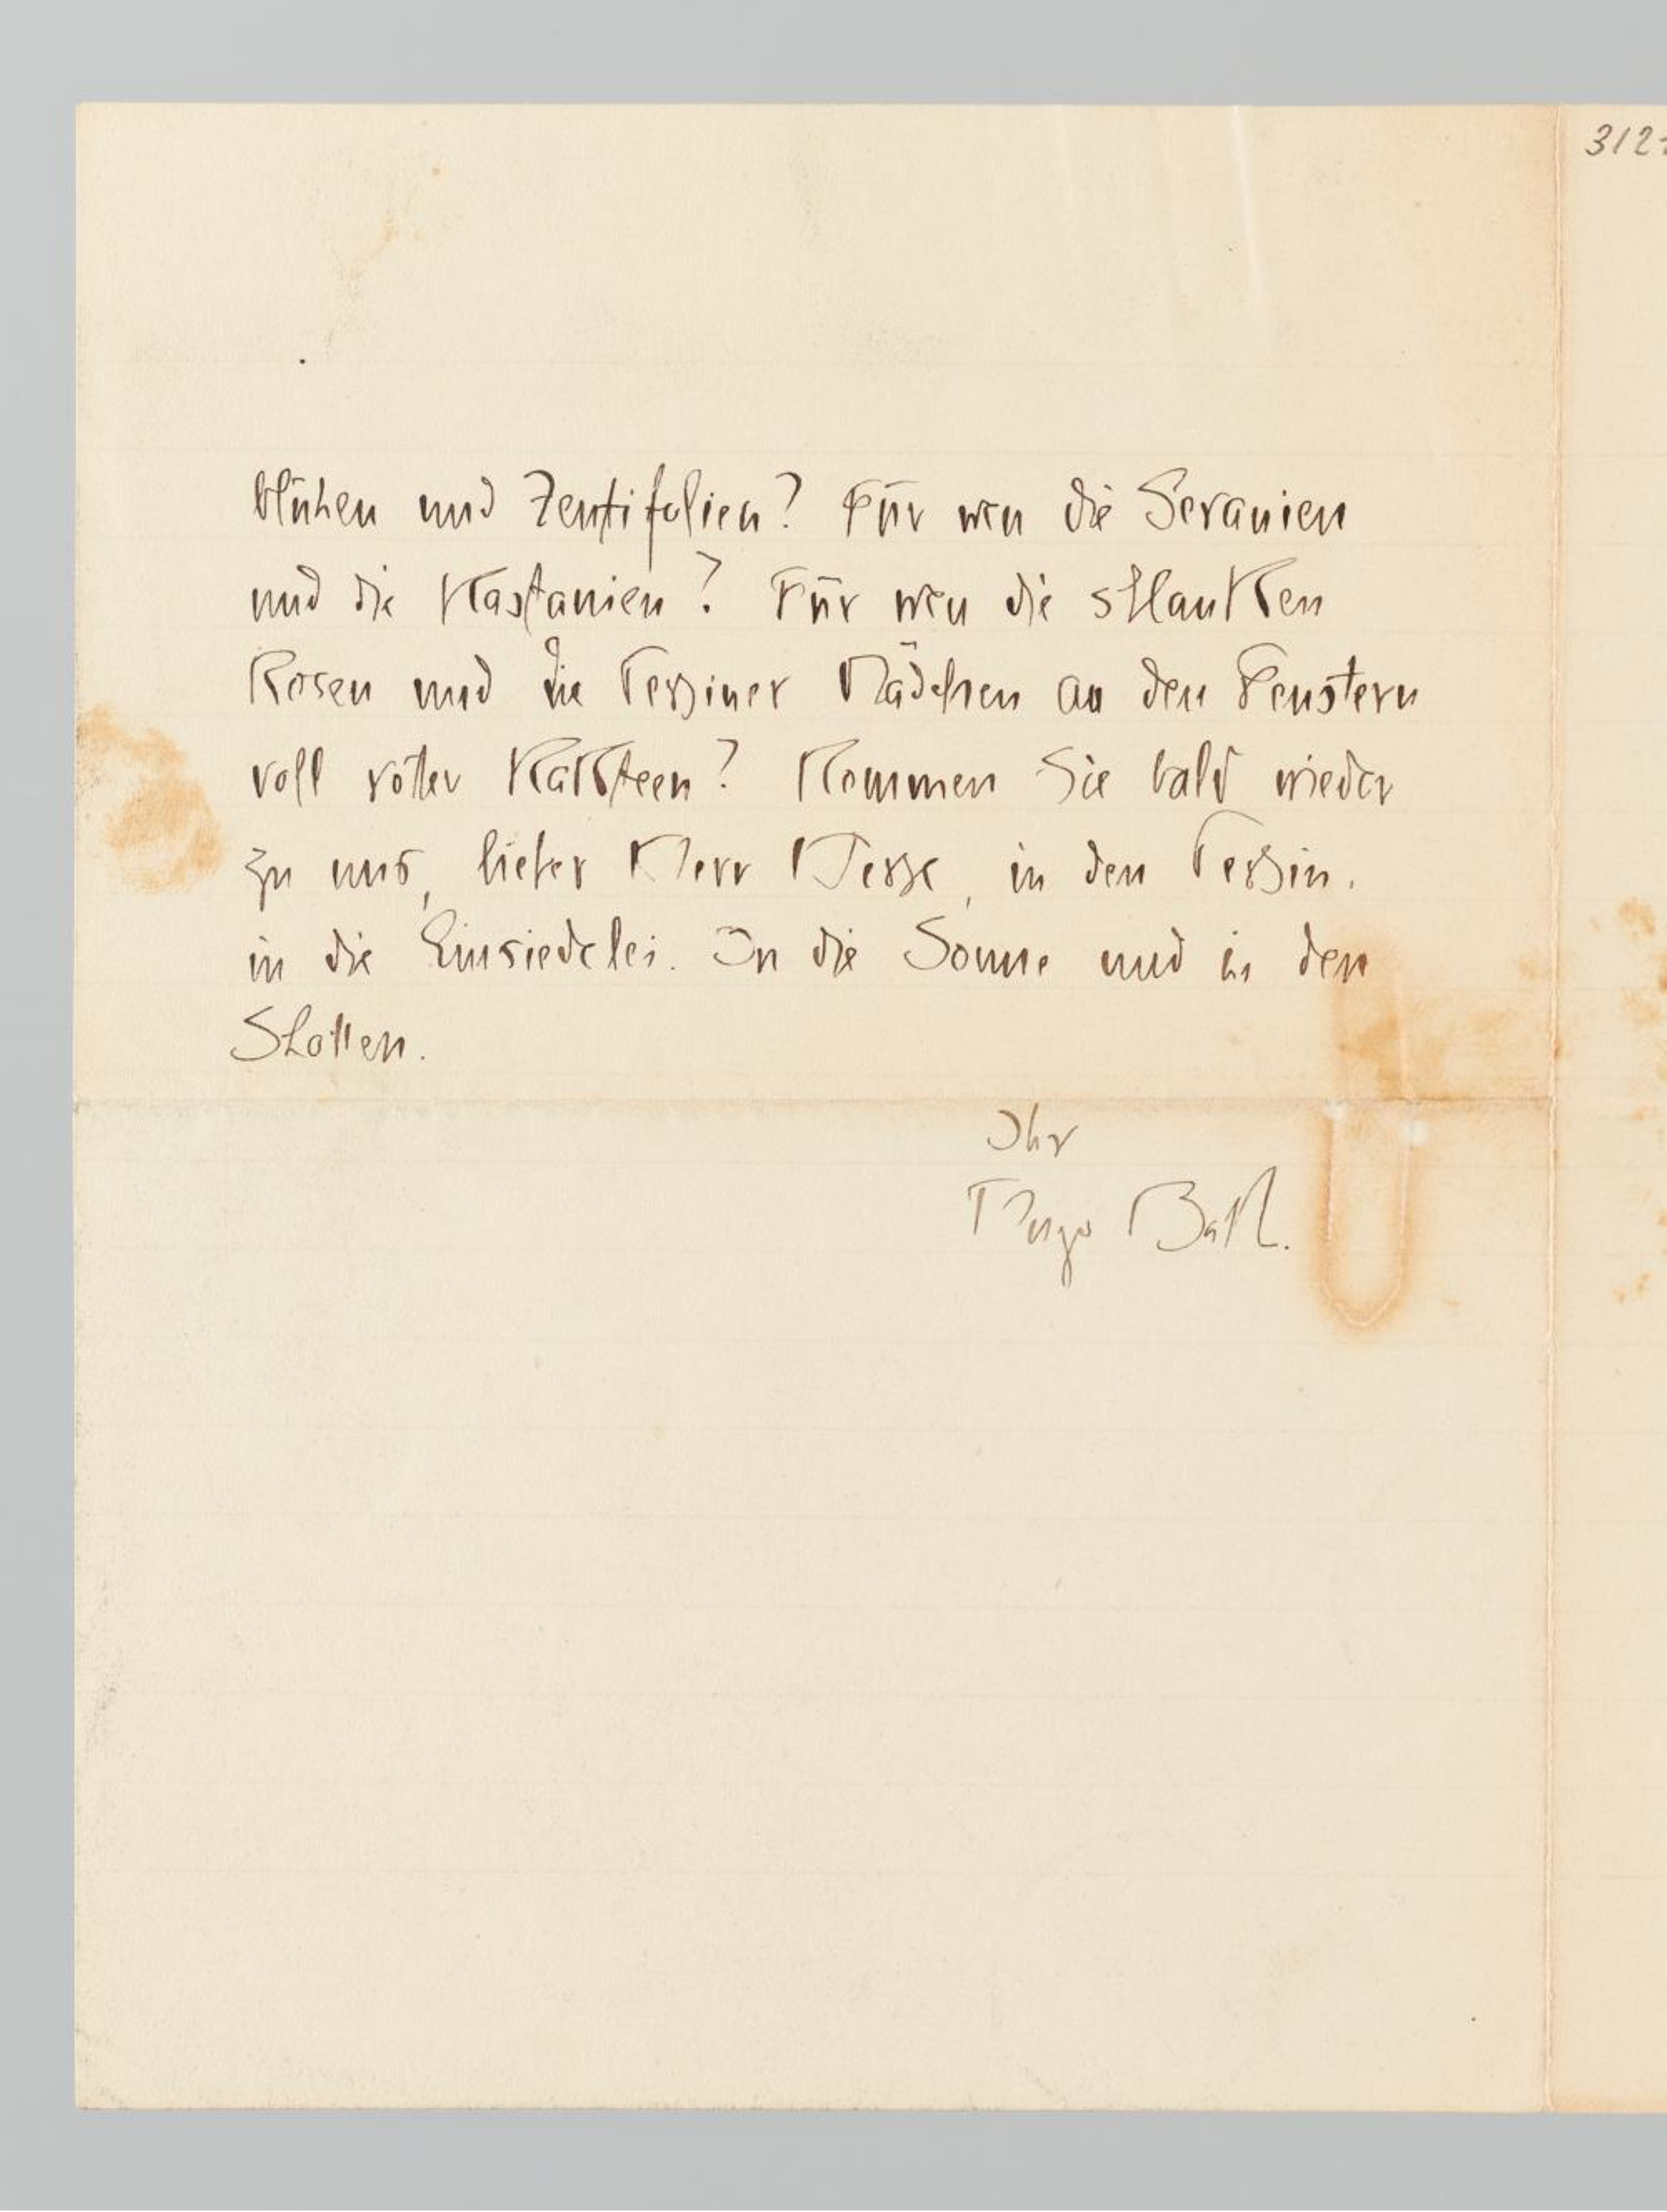 312
blühen und Zentifolien? Für wen die Geranien
und die Kastanien? Für wen die schlanken
Rosen und die Tessiner Mädchen an den Fenstern
voll roter Kakteen? Kommen Sie bald wieder
zu uns, lieber Herr Hesse, in den Tessin.
in die Einsiedelei. In die Sonne und in den
Schatten.
Ihr
Hugo Ball.